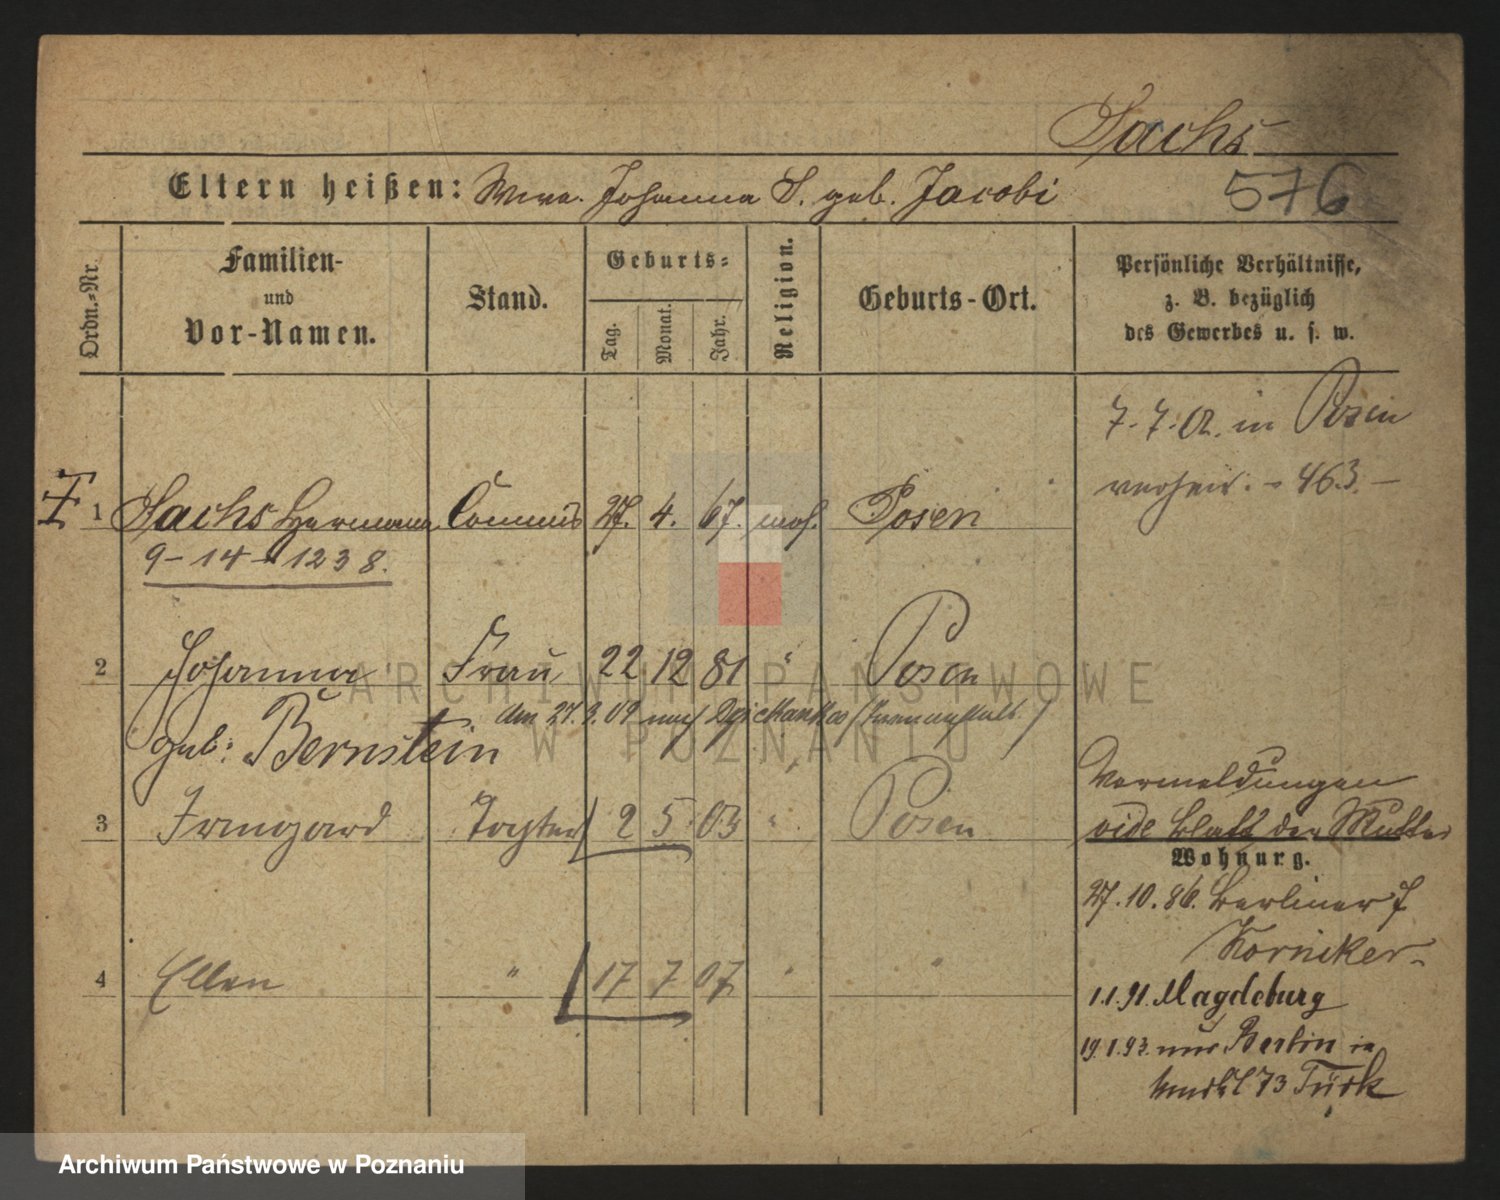 Sachs
Eltern heißen: Wwe. Johanna S. geb. Jacobi
576
Ordn.-Nr.
Familien-
und
Vor-Namen.
Stand.
Geburts-
Tag.
Monat.
Jahr.
Religion.
Geburts-Ort.
Persönliche Verhältnisse,
z. B. bezüglich
des Gewerbes u. s. w.
7.7.02. in Posen
verheir. - 463. -
1 Sachs Hermann Commis 27. 4. 67. mos. Posen
9-14-1238.
2 Johanna Frau 22 12 81 " Posen
am 27.9.09 nach Dziekanka (Irrenanstalt)
geb: Bernstein
3 Irmgard Tochter 2 5 03 " Posen
Vermeldungen
vide Blatt der Mutter
Wohnung.
27.10.86. Berliner 7
Korniker
4 Ellen " 17 7 07 " "
1.1.91. Magdeburg
19.1.93. nur Berlin in
73 Türk
ARCHIWUM PAŃSTWOWE
W POZNANIU
Archiwum Państwowe w Poznaniu